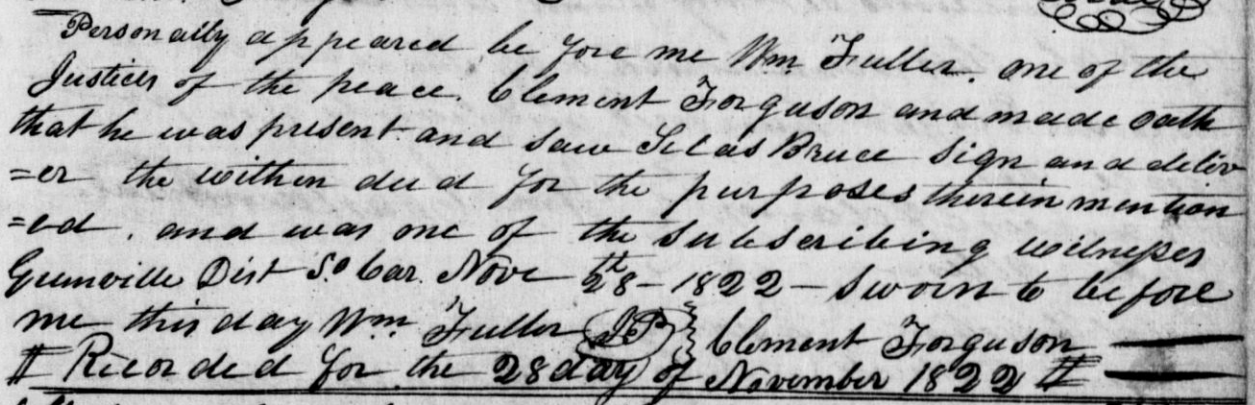 Personally appeared before me Wm Fuller. one of the
Justices of the peace. Clement Forguson and made oath
that he was present and saw Silas Bruce sign and deliv
=er the within deed for the purposes therein mention
=ed. and was one of the subscribing witnesses
Greenville Dist So Car. Nove 28th - 1822 - sworn to before
me this day Wm Fuller JP Clement Forguson
Recorded for the 28 day of November 1822